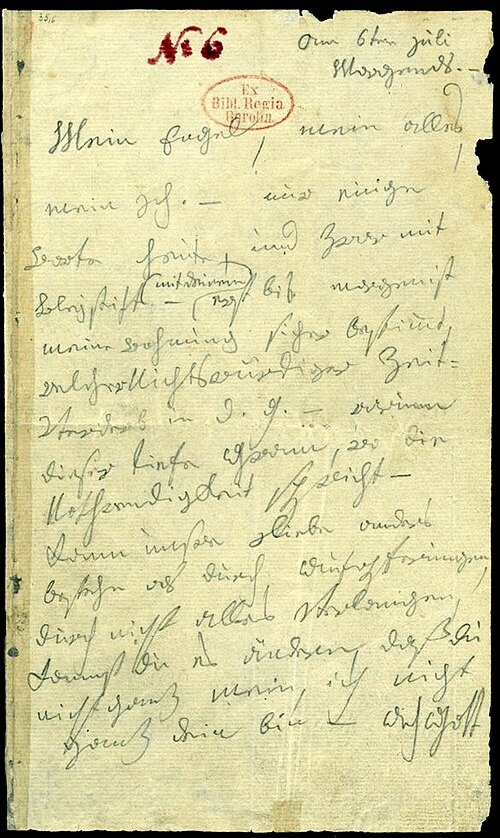 35,6
№ 6
am 6ten juli
Morgends. –
Ex
Bibl. Regia
Berolin.
Mein Engel, mein alles,
mein Ich. – nur einige
Worte heute, und zwar mit
Bleystift – (mit deinem)
erst bis morgen ist
meine Wohnung sicher bestimmt,
welcher Nichtswürdiger Zeit-
Verderb in d. g. – warum
dieser tiefe Gram, wo die
Nothwendigkeit spricht –
Kann unsre Liebe anders
bestehn als durch Aufopferungen,
durch nicht alles verlangen,
kannst du es ändern, daß du
nicht ganz mein, ich nicht
ganz dein bin – Ach Gott